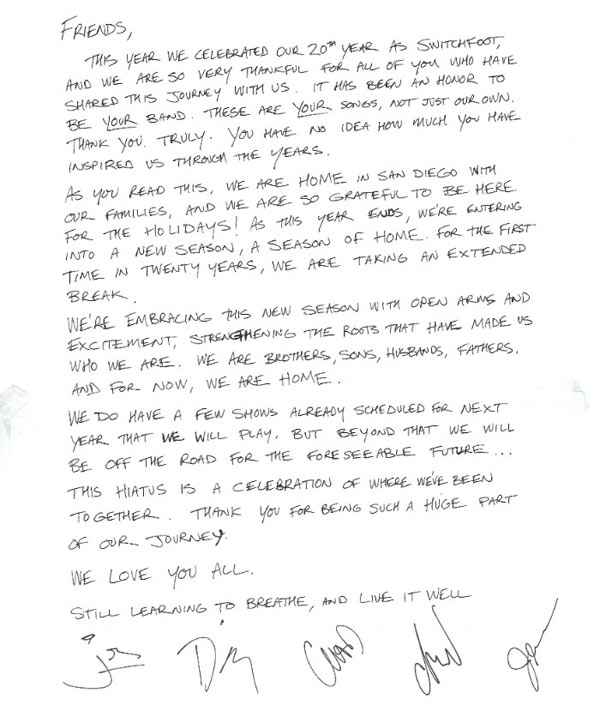 FRIENDS,
THIS YEAR WE CELEBRATED OUR 20TH YEAR AS SWITCHFOOT,
AND WE ARE SO VERY THANKFUL FOR ALL OF YOU WHO HAVE
SHARED THIS JOURNEY WITH US. IT HAS BEEN AN HONOR TO
BE YOUR BAND. THESE ARE YOUR SONGS, NOT JUST OUR OWN.
THANK YOU. TRULY. YOU HAVE NO IDEA HOW MUCH YOU HAVE
INSPIRED US THROUGH THE YEARS.
AS YOU READ THIS, WE ARE HOME IN SAN DIEGO WITH
OUR FAMILIES, AND WE ARE SO GRATEFUL TO BE HERE
FOR THE HOLIDAYS! AS THIS YEAR ENDS, WE'RE ENTERING
INTO A NEW SEASON, A SEASON OF HOME. FOR THE FIRST
TIME IN TWENTY YEARS, WE ARE TAKING AN EXTENDED
BREAK.
WE'RE EMBRACING THIS NEW SEASON WITH OPEN ARMS AND
EXCITEMENT, STRENGTHENING THE ROOTS THAT HAVE MADE US
WHO WE ARE. WE ARE BROTHERS, SONS, HUSBANDS, FATHERS.
AND FOR NOW, WE ARE HOME.
WE DO HAVE A FEW SHOWS ALREADY SCHEDULED FOR NEXT
YEAR THAT WE WILL PLAY, BUT BEYOND THAT WE WILL
BE OFF THE ROAD FOR THE FORESEEABLE FUTURE...
THIS HIATUS IS A CELEBRATION OF WHERE WE'VE BEEN
TOGETHER. THANK YOU FOR BEING SUCH A HUGE PART
OF OUR JOURNEY.
WE LOVE YOU ALL.
STILL LEARNING TO BREATHE, AND LIVE IT WELL